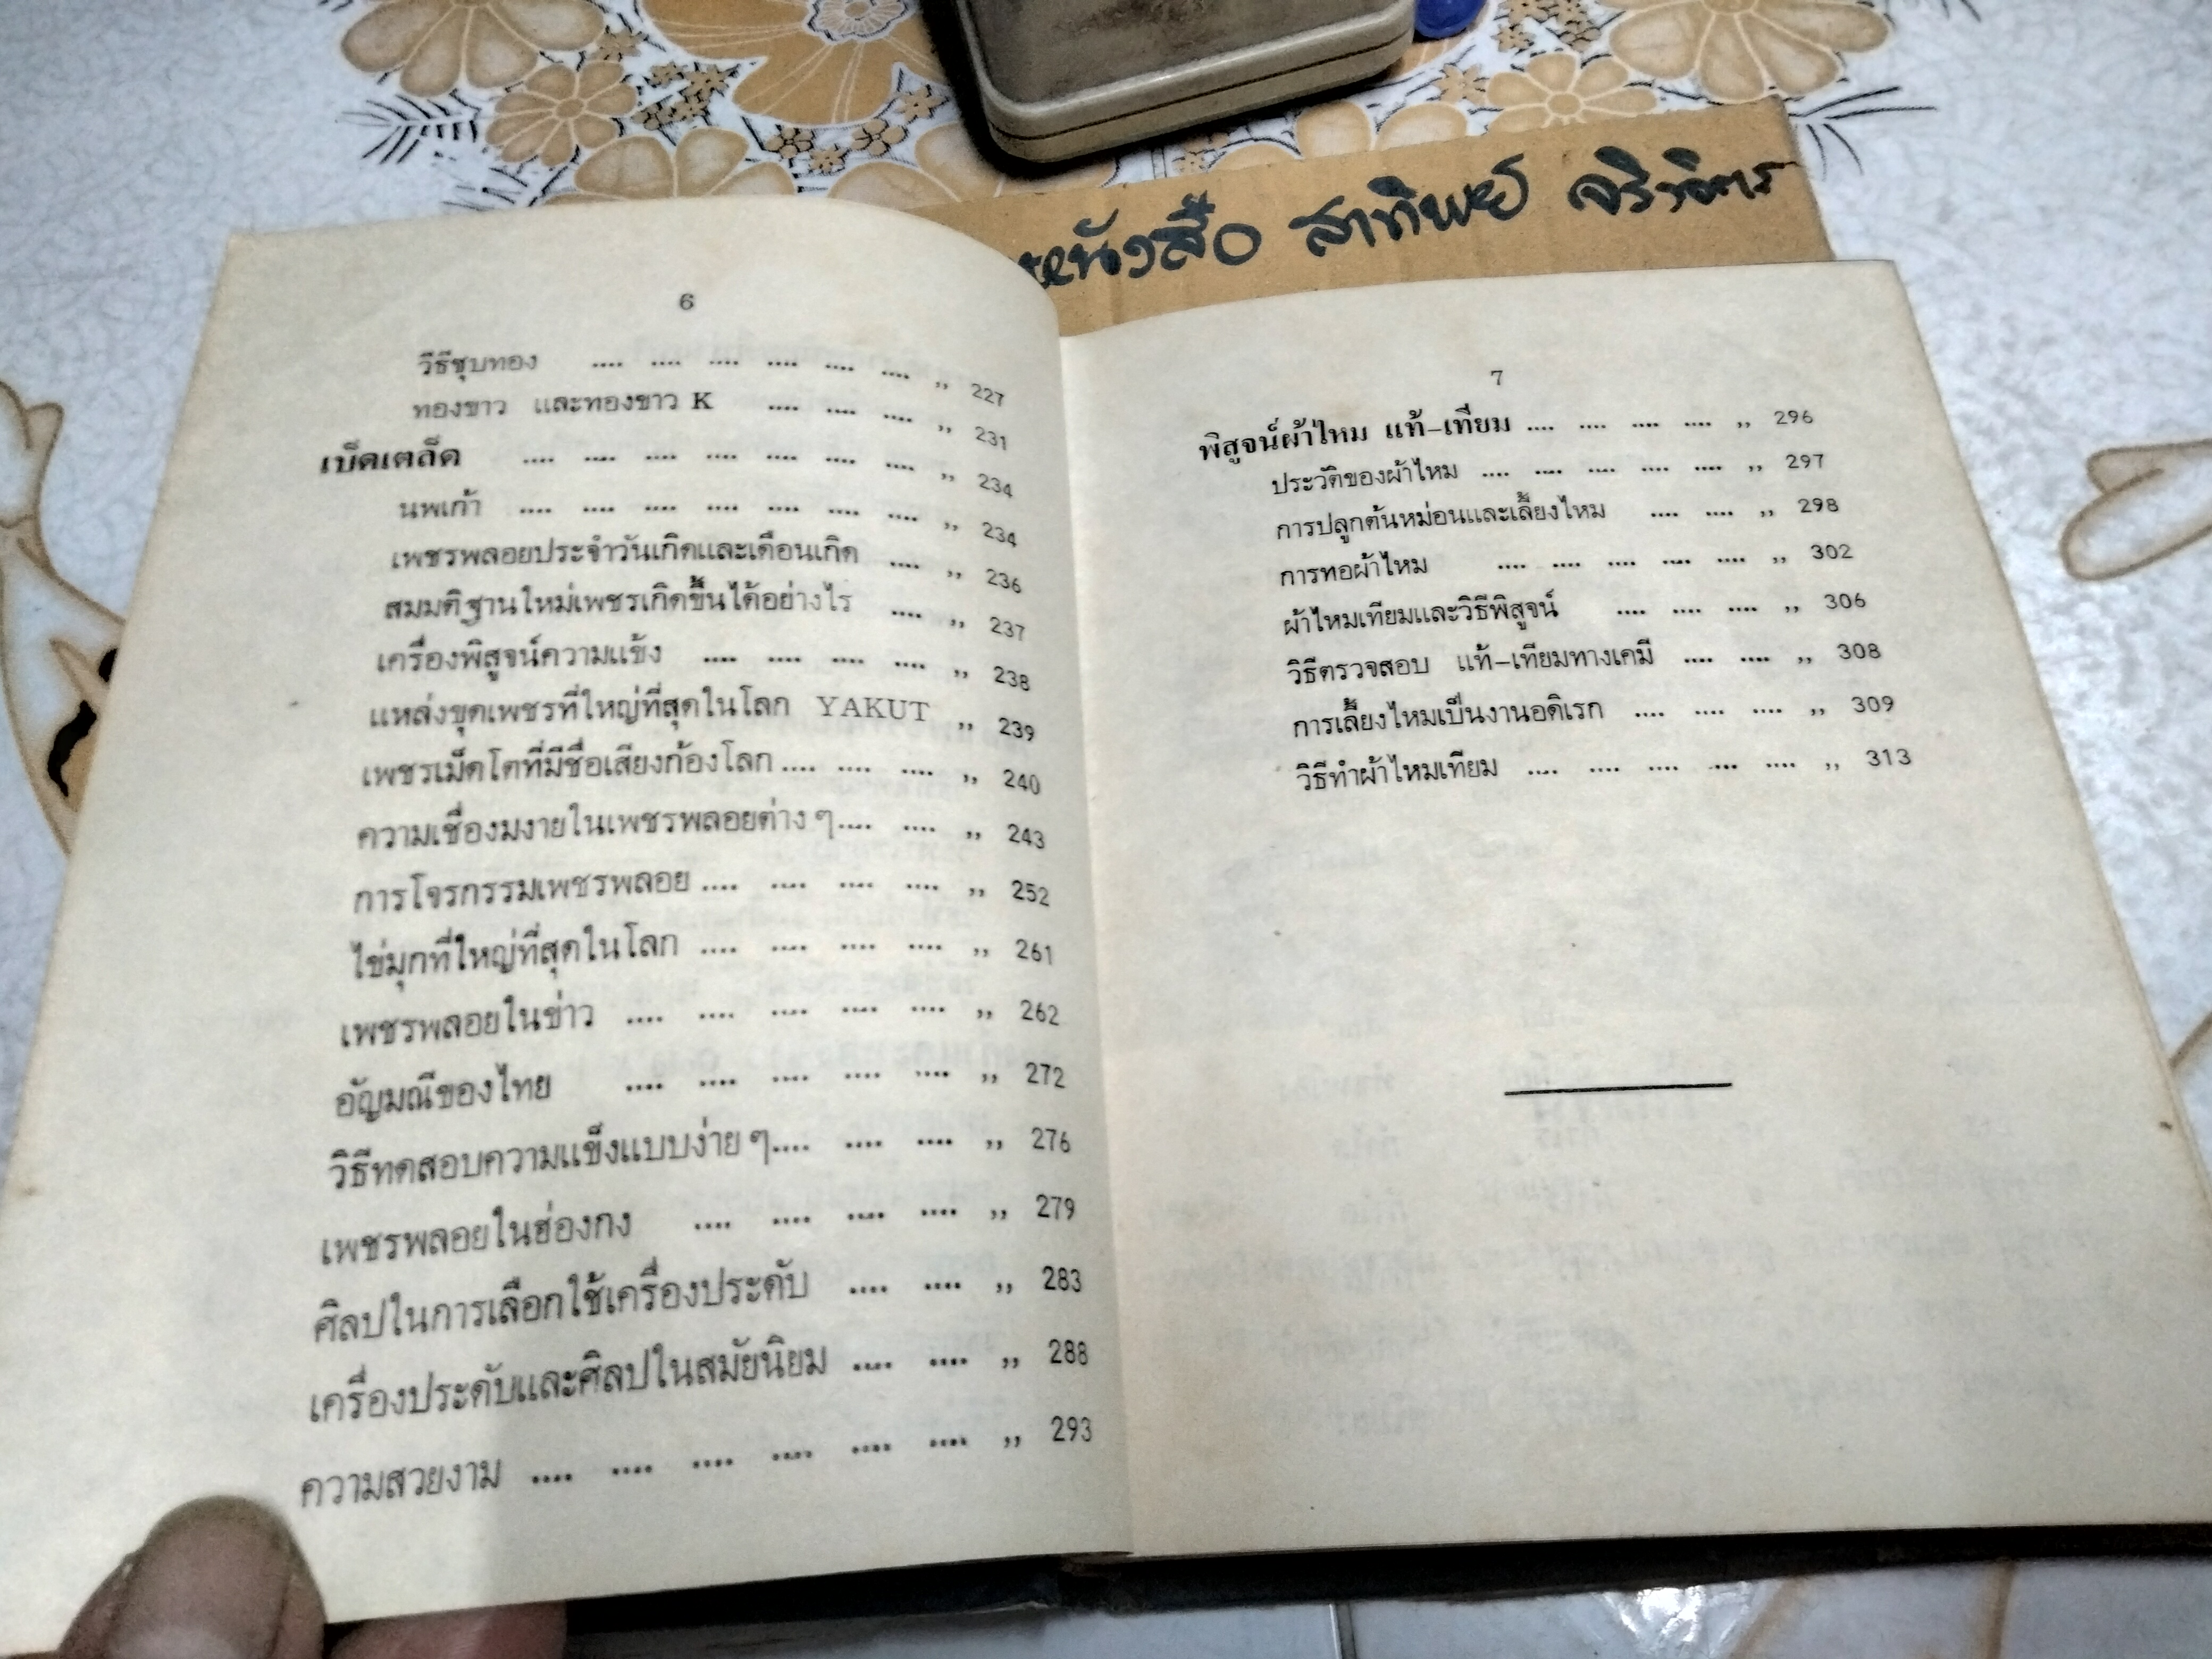 หนังสือ สาทิพย์ จริวิจิตร
6
วิธีชุบทอง .... .... .... .... .... .... ,, 227
ทองขาว และทองขาว K .... .... .... ,, 231
เบ็ดเตล็ด .... .... .... .... .... .... .... ,, 234
นพเก้า .... .... .... .... .... .... .... ,, 234
เพชรพลอยประจำวันเกิดและเดือนเกิด .... ,, 236
สมมติฐานใหม่เพชรเกิดขึ้นได้อย่างไร .... ,, 237
เครื่องพิสูจน์ความแข้ง .... .... .... .... ,, 238
แหล่งขุดเพชรที่ใหญ่ที่สุดในโลก YAKUT ,, 239
เพชรเม็ดโตที่มีชื่อเสียงก้องโลก .... .... .... ,, 240
ความเชื่องมงายในเพชรพลอยต่าง ๆ .... .... ,, 243
การโจรกรรมเพชรพลอย .... .... .... .... ,, 252
ไข่มุกที่ใหญ่ที่สุดในโลก .... .... .... .... ,, 261
เพชรพลอยในข่าว .... .... .... .... .... ,, 262
อัญมณีของไทย .... .... .... .... .... ,, 272
วิธีทดสอบความแข็งแบบง่าย ๆ .... .... .... ,, 276
เพชรพลอยในฮ่องกง .... .... .... .... ,, 279
ศิลปในการเลือกใช้เครื่องประดับ .... .... ,, 283
เครื่องประดับและศิลปในสมัยนิยม .... .... ,, 288
ความสวยงาม .... .... .... .... .... .... ,, 293
7
พิสูจน์ผ้าไหม แท้-เทียม .... .... .... .... ,, 296
ประวัติของผ้าไหม .... .... .... .... .... ,, 297
การปลูกต้นหม่อนและเลี้ยงไหม .... .... ,, 298
การทอผ้าไหม .... .... .... .... .... ,, 302
ผ้าไหมเทียมและวิธีพิสูจน์ .... .... .... ,, 306
วิธีตรวจสอบ แท้-เทียมทางเคมี .... .... ,, 308
การเลี้ยงไหมเป็นงานอดิเรก .... .... .... ,, 309
วิธีทำผ้าไหมเทียม .... .... .... .... .... ,, 313